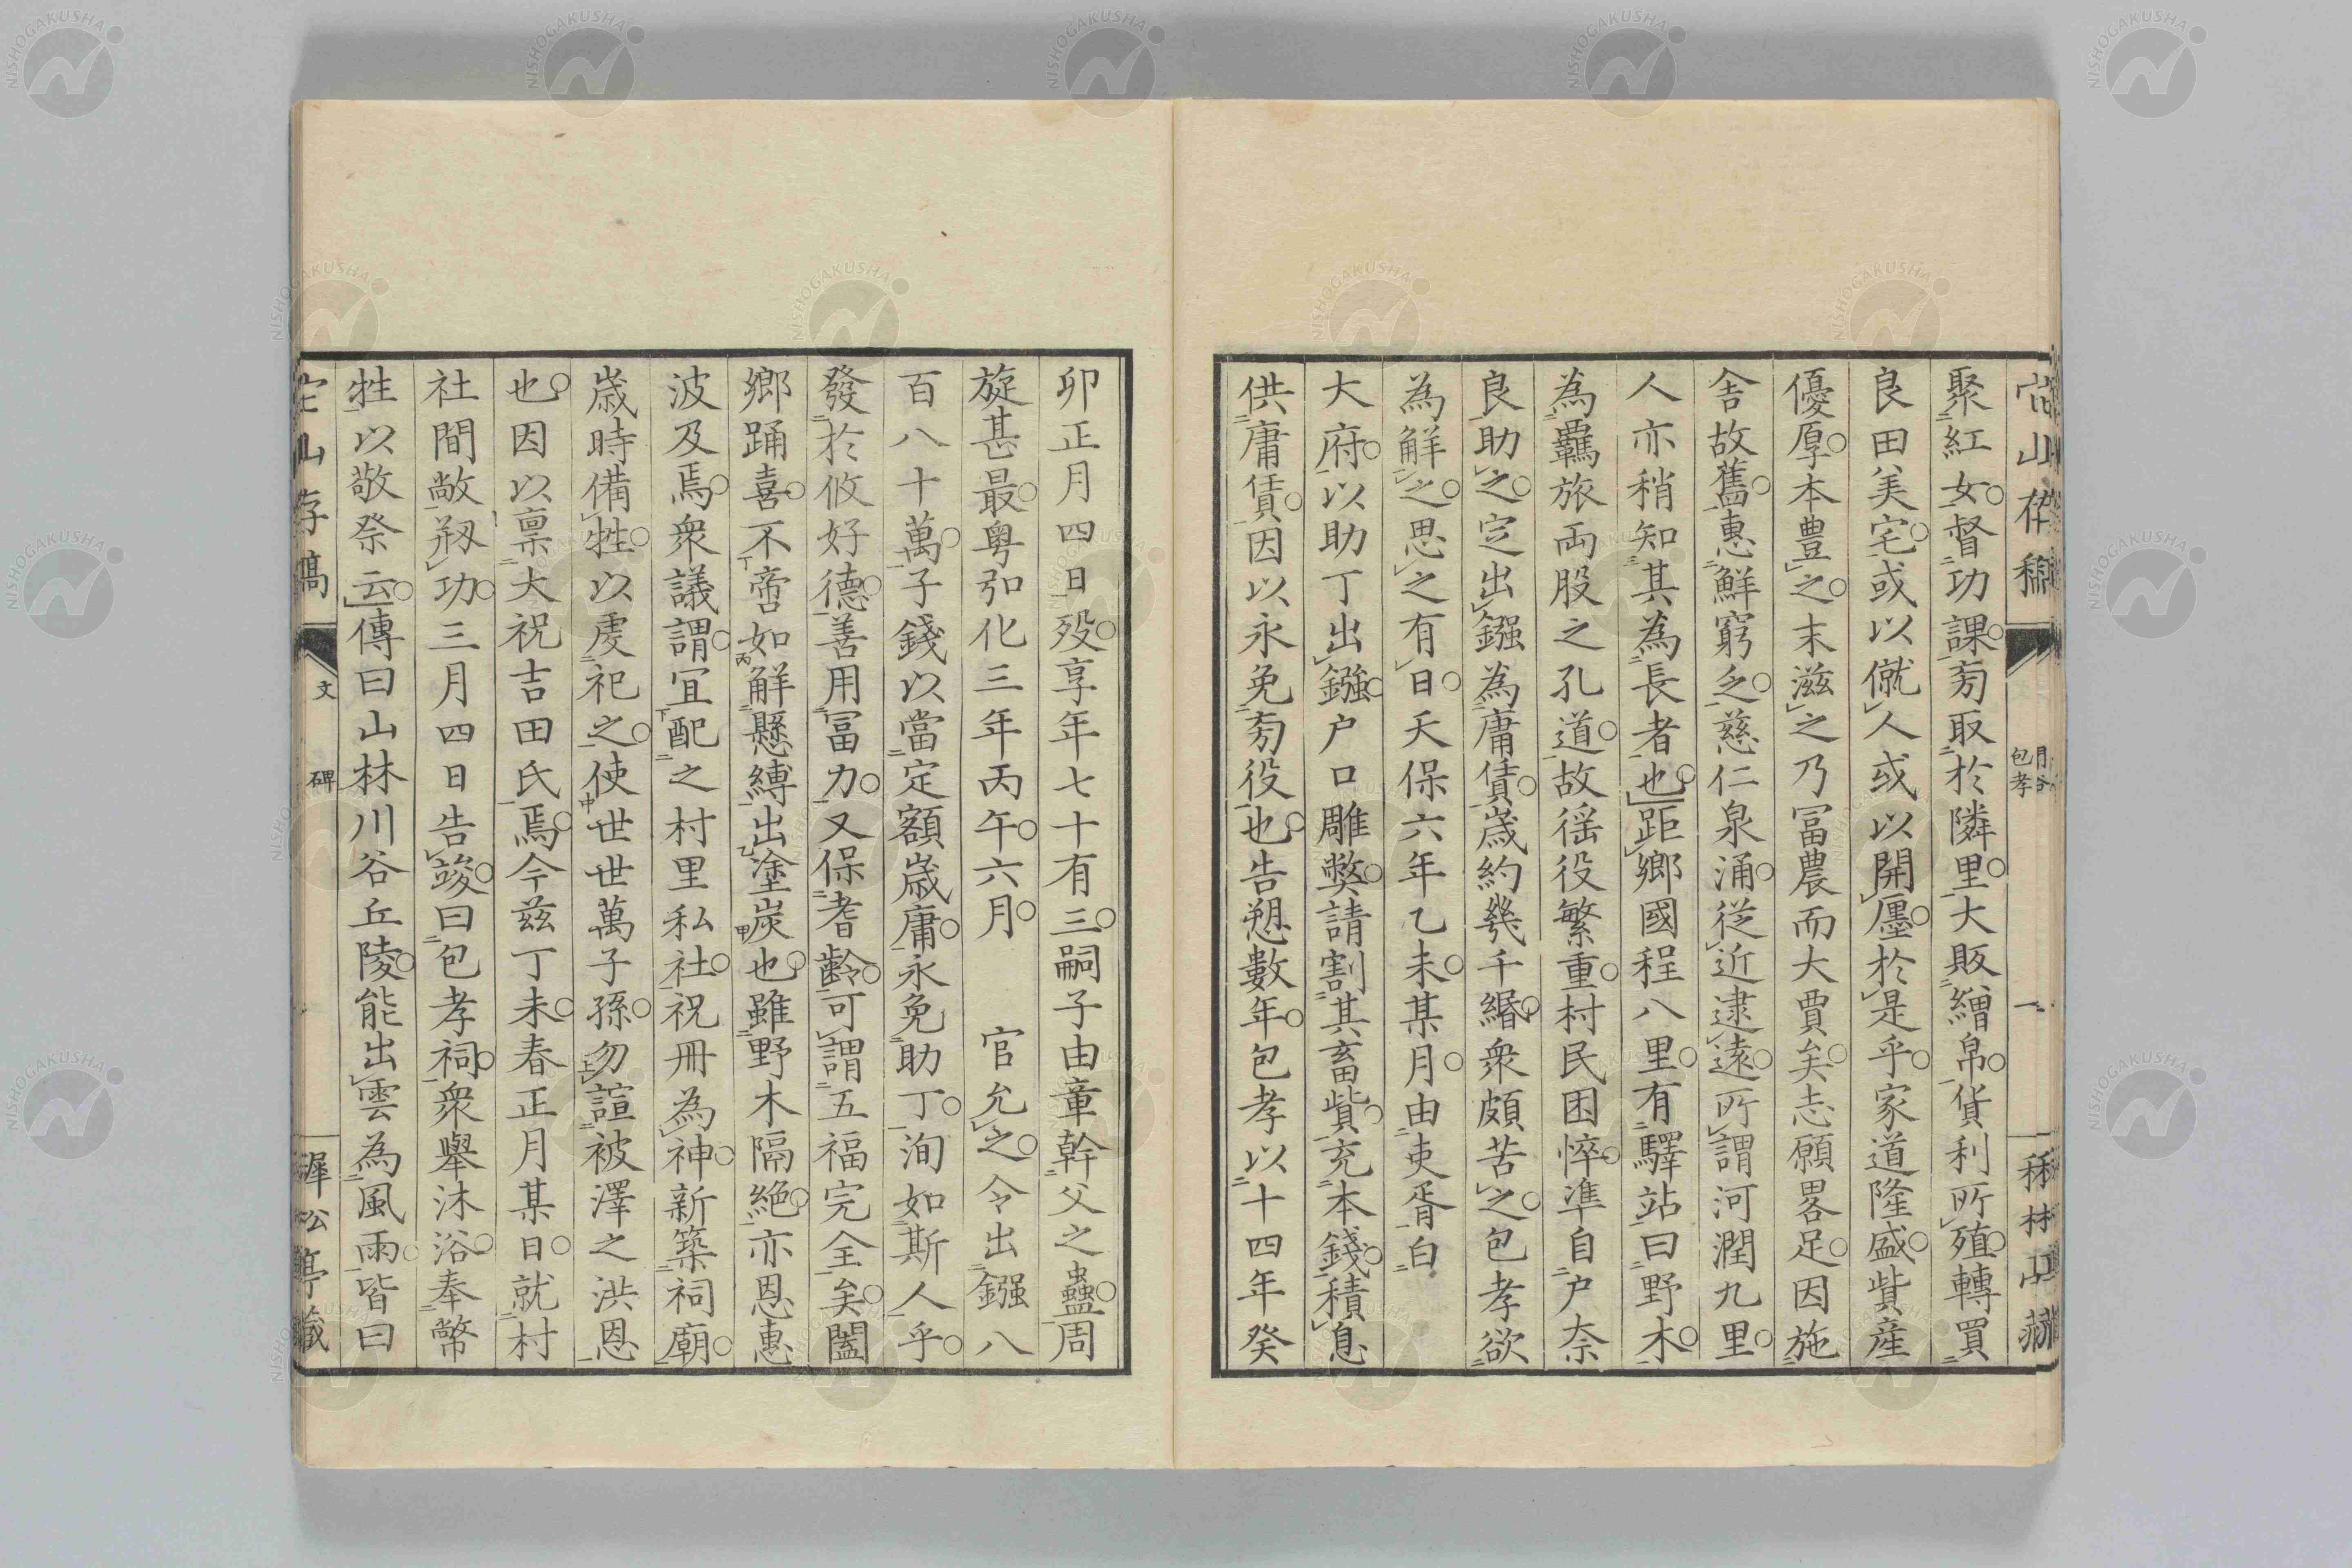 聚紅女督功課旁取於隣里大販繒帛貨利所殖轉買
良田美宅或以僦人或以開壥於是乎家道隆盛貲産
優厚本豊之末滋之乃冨農而大賈矣志願畧足因施
舍故舊惠鮮窮乏慈仁泉涌従近逮遠所謂河潤九里
人亦稍知其為長者也距鄉國程八里有驛站曰野木
為羈旅両股之孔道故徭役繁重村民困悴準自户奈
良助之定出鏹為庸賃歲約幾千緡衆頗苦之包孝欲
為解之思之有日天保六年乙未某月由吏胥白
大府以助丁出鏹户口雕弊請割其畜貲充本錢積息
供庸賃因以永免旁役也告愬數年包孝以十四年癸
卯正月四日歿享年七十有三嗣子由章幹父之蠱周
旋甚最粤弘化三年丙午六月 官允之令出鏹八
百八十萬子錢以當定額歲庸永免助丁洵如斯人乎
發於攸好德善用冨力又保耆齡可謂五福完全矣闔
鄉踊喜不啻如解懸縛出塗炭也雖野木隔絶亦恩惠
波及焉衆議謂宜配之村里私社祝冊為神新築祠廟
歲時備牲以虔祀之使世世萬子孫勿諠被澤之洪恩
也因以禀大祝吉田氏焉今茲丁未春正月某日就村
社間敞剏功三月四日告竣曰包孝祠衆舉沐浴奉幣
牲以敬祭云傳曰山林川谷丘陵能出雲為風雨皆曰
文 碑